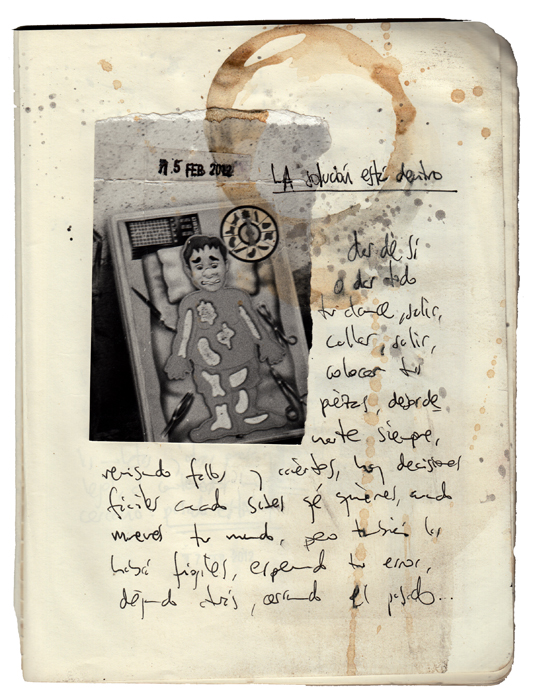 15 FEB 2012
LA solución está dentro
dar de sí
o dar todo
tu dance, salir,
callar, salir,
colocar tus
piezas, desorde
narte siempre,
revisando fallos y aciertos, hay decisiones
fáciles cuando sabes qé quieres, cuando
mueves tu mundo, pero también las
habrá frágiles, esperando tu error,
dejando atrás, cerrando el pasado...